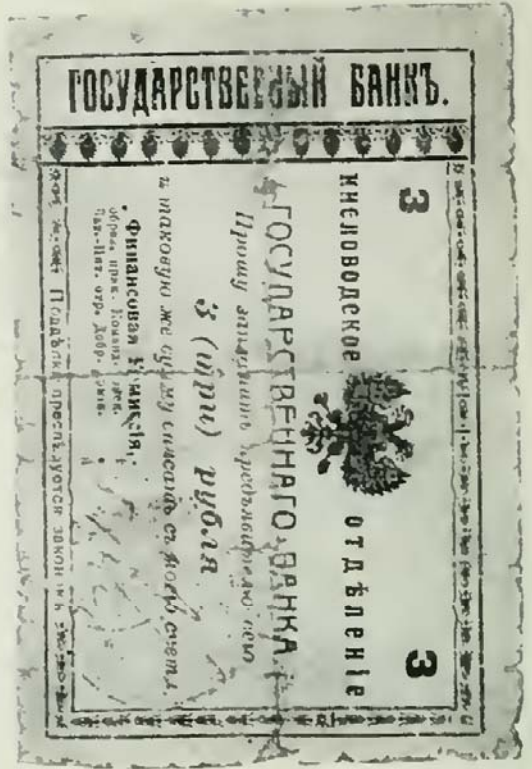 ГОСУДАРСТВЕННЫЙ БАНКЪ.
3 3
КИСЛОВОДСКОЕ ОТДѢЛЕНІЕ
ГОСУДАРСТВЕННАГО БАНКА
Прошу заплатить предъявителю сего
3 (три) рубля
и таковую же сумму списать съ моего счета.
Финансовая Комиссія,
образ. прик. Команд.
Пят. отр. Добр.
Поддѣлка преслѣдуется закономъ